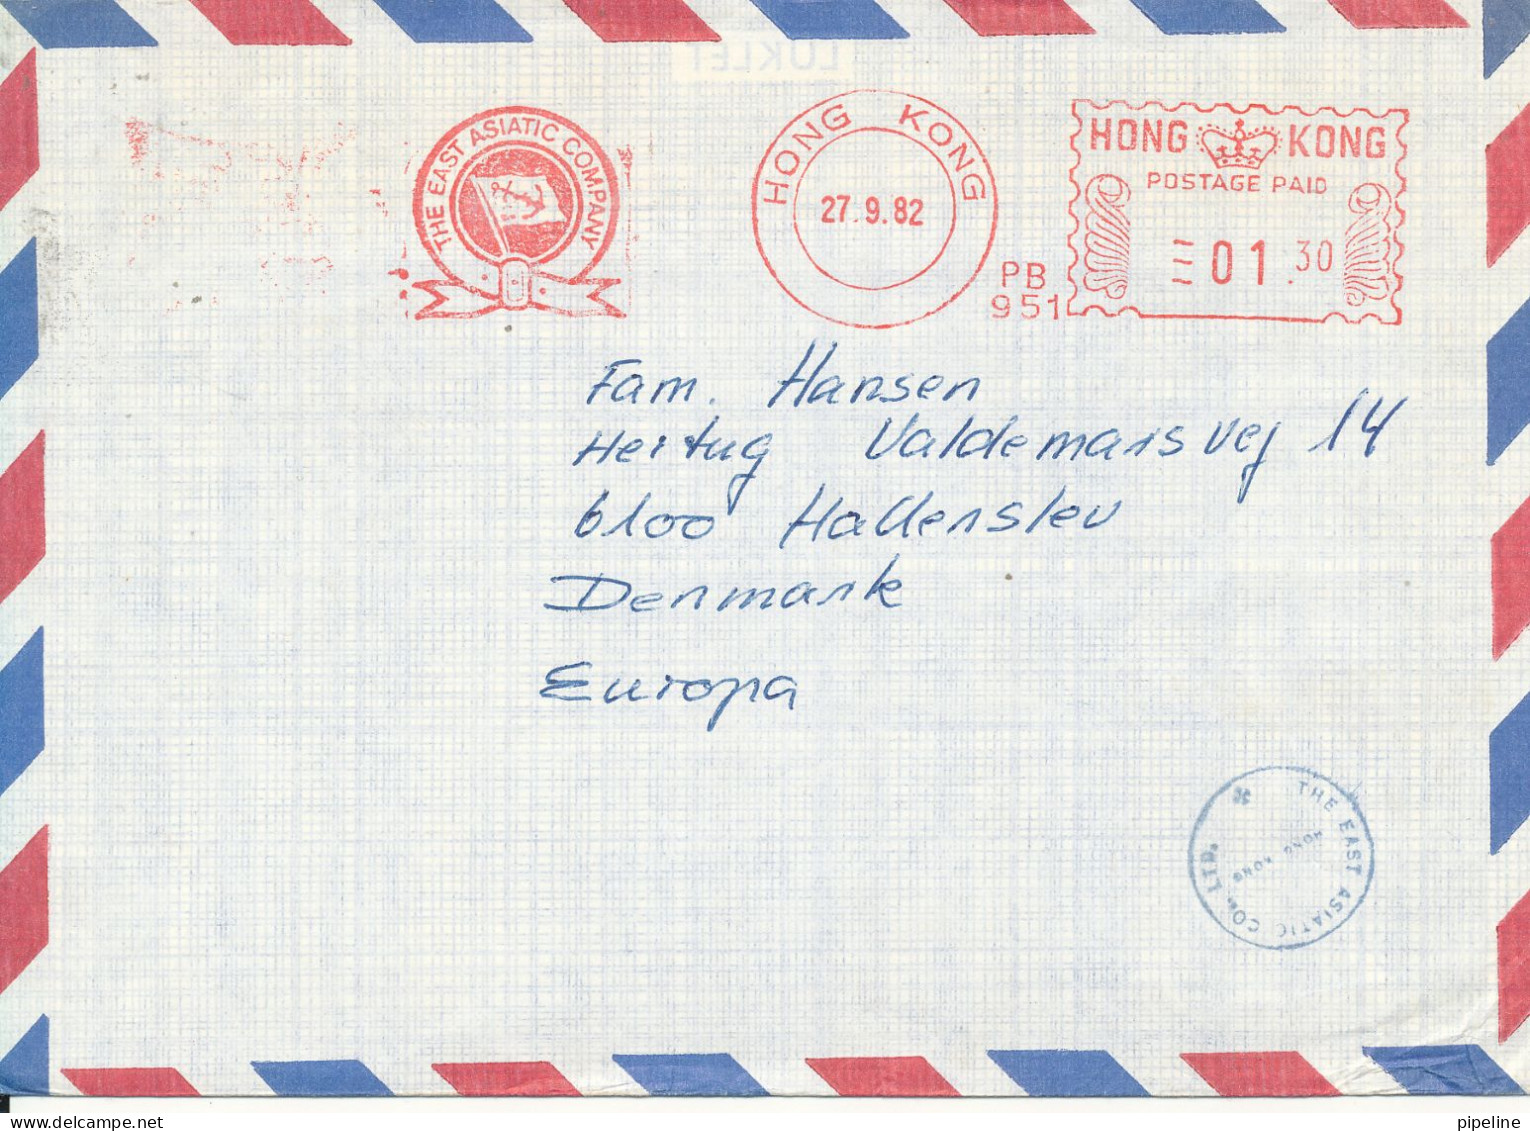 LUKLET
THE EAST ASIATIC COMPANY
HONG KONG
27.9.82
PB
951
HONG KONG
POSTAGE PAID
01.30
Fam. Hansen
Hertug Valdemarsvej 14
6100 Hadersslev
Denmark
Europa
THE EAST ASIATIC CO., LTD.
HONG KONG
pipeline